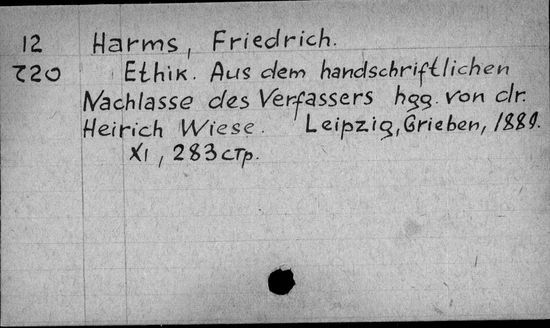 12 Harms, Friedrich.
220 Ethik. Aus dem handschriftlichen
Nachlasse des Verfassers hgg. von dr.
Heirich Wiese. Leipzig, Grieben, 1889.
XI, 283 стр.